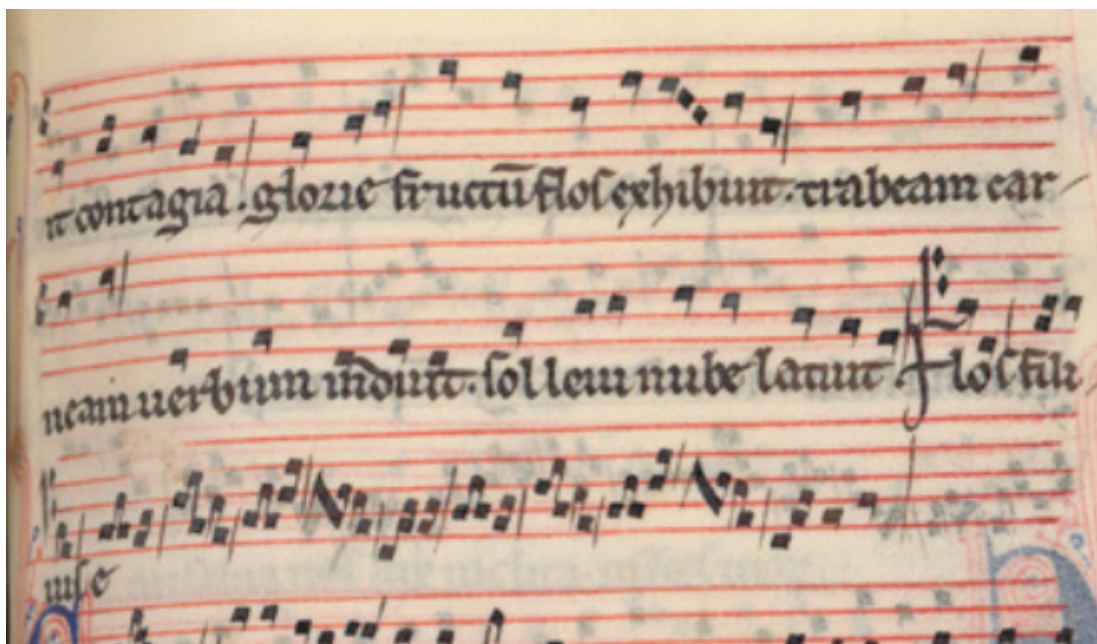 it contagia. glorie fructū flos exhibuit. trabeam car
neam uerbum induit. sol leui nube latuit. Flos fili
us e